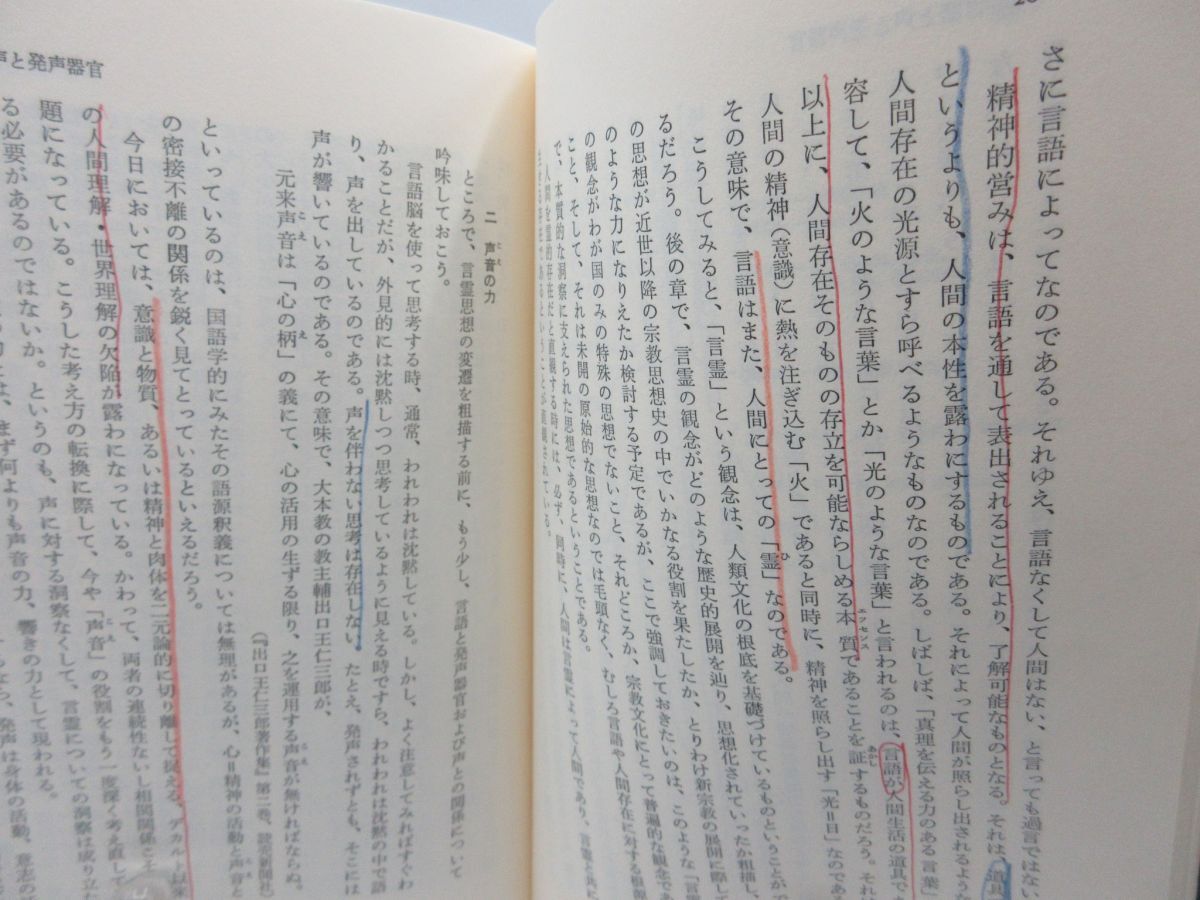 さに言語によってなのである。それゆえ、言語なくして人間はない、と言っても過言ではない
精神的営みは、言語を通して表出されることにより、了解可能なものとなる。それは、道具
というよりも、人間の本性を露わにするものである。それによって人間が照らし出されるような
人間存在の光源とすら呼べるようなものなのである。しばしば、「真理を伝える力のある言葉」
容して、「火のような言葉」とか「光のような言葉」と言われるのは、言語が人間生活の道具で
以上に、人間存在そのものの存立を可能ならしめる本質であることを証するものだろう。それは
エッセンス
あかし
人間の精神（意識）に熱を注ぎ込む「火」であると同時に、精神を照らし出す「光＝日」なのであ
その意味で、言語はまた、人間にとっての「霊」なのである。
ひ
こうしてみると、「言霊」という観念は、人類文化の根底を基礎づけているものということがで
るだろう。後の章で、言霊の観念がどのような歴史的展開を辿り、思想化されていったか粗描し、
の思想が近世以降の宗教思想史の中でいかなる役割を果たしたか、とりわけ新宗教の展開に際して
のような力になりえたか検討する予定であるが、ここで強調しておきたいのは、このような「言霊
の観念がわが国のみの特殊の思想でないこと、それどころか、宗教文化にとって普遍的な観念であ
こと、そして、それは未開の原始的な思想なのでは毛頭なく、むしろ言語や人間存在に対する根源
で、本質的な洞察に支えられた思想であるということである。
人間を霊的存在だと直観する時には、必ず、同時に、人間は言霊によって人間であり、言霊と共に
声と発声器官
二 声音の力
こえ
ところで、言霊思想の変遷を粗描する前に、もう少し、言語と発声器官および声との関係について
吟味しておこう。
言語脳を使って思考する時、通常、われわれは沈黙している。しかし、よく注意してみればすぐわ
かることだが、外見的には沈黙しつつ思考しているように見える時ですら、われわれは沈黙の中で語
り、声を出しているのである。声を伴わない思考は存在しない。たとえ、発声されずとも、そこには
声が響いているのである。その意味で、大本教の教主輔出口王仁三郎が、
元来声音は「心の柄」の義にて、心の活用の生ずる限り、之を運用する声音が無ければならぬ。
こえ
え
こえ
（『出口王仁三郎著作集』第二巻、読売新聞社）
といっているのは、国語学的にみたその語源釈義については無理があるが、心＝精神の活動と声音と
の密接不離の関係を鋭く見てとっているといえるだろう。
今日においては、意識と物質、あるいは精神と肉体を二元論的に切り離して捉える、デカルト以来
の人間理解・世界理解の欠陥が露わになっている。かわって、両者の連続性ないし相関関係こそ
題になっている。こうした考え方の転換に際して、今や「声音」の役割をもう一度深く考え直して
こえ
る必要があるのではないか。というのも、声に対する洞察なくして、言霊についての洞察は成り立
まず何よりも声音の力、響きの力として現われる。
発声は身体の活動、意志の